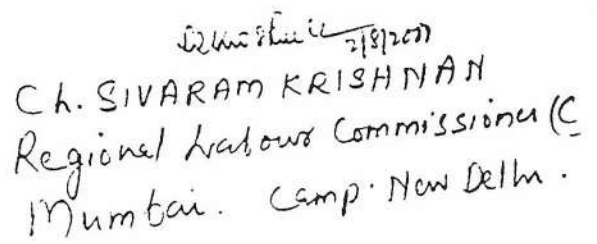 2/8/2007
Ch. SIVARAM KRISHNAN
Regional Labour Commissioner (C
Mumbai. Camp. New Delhi.